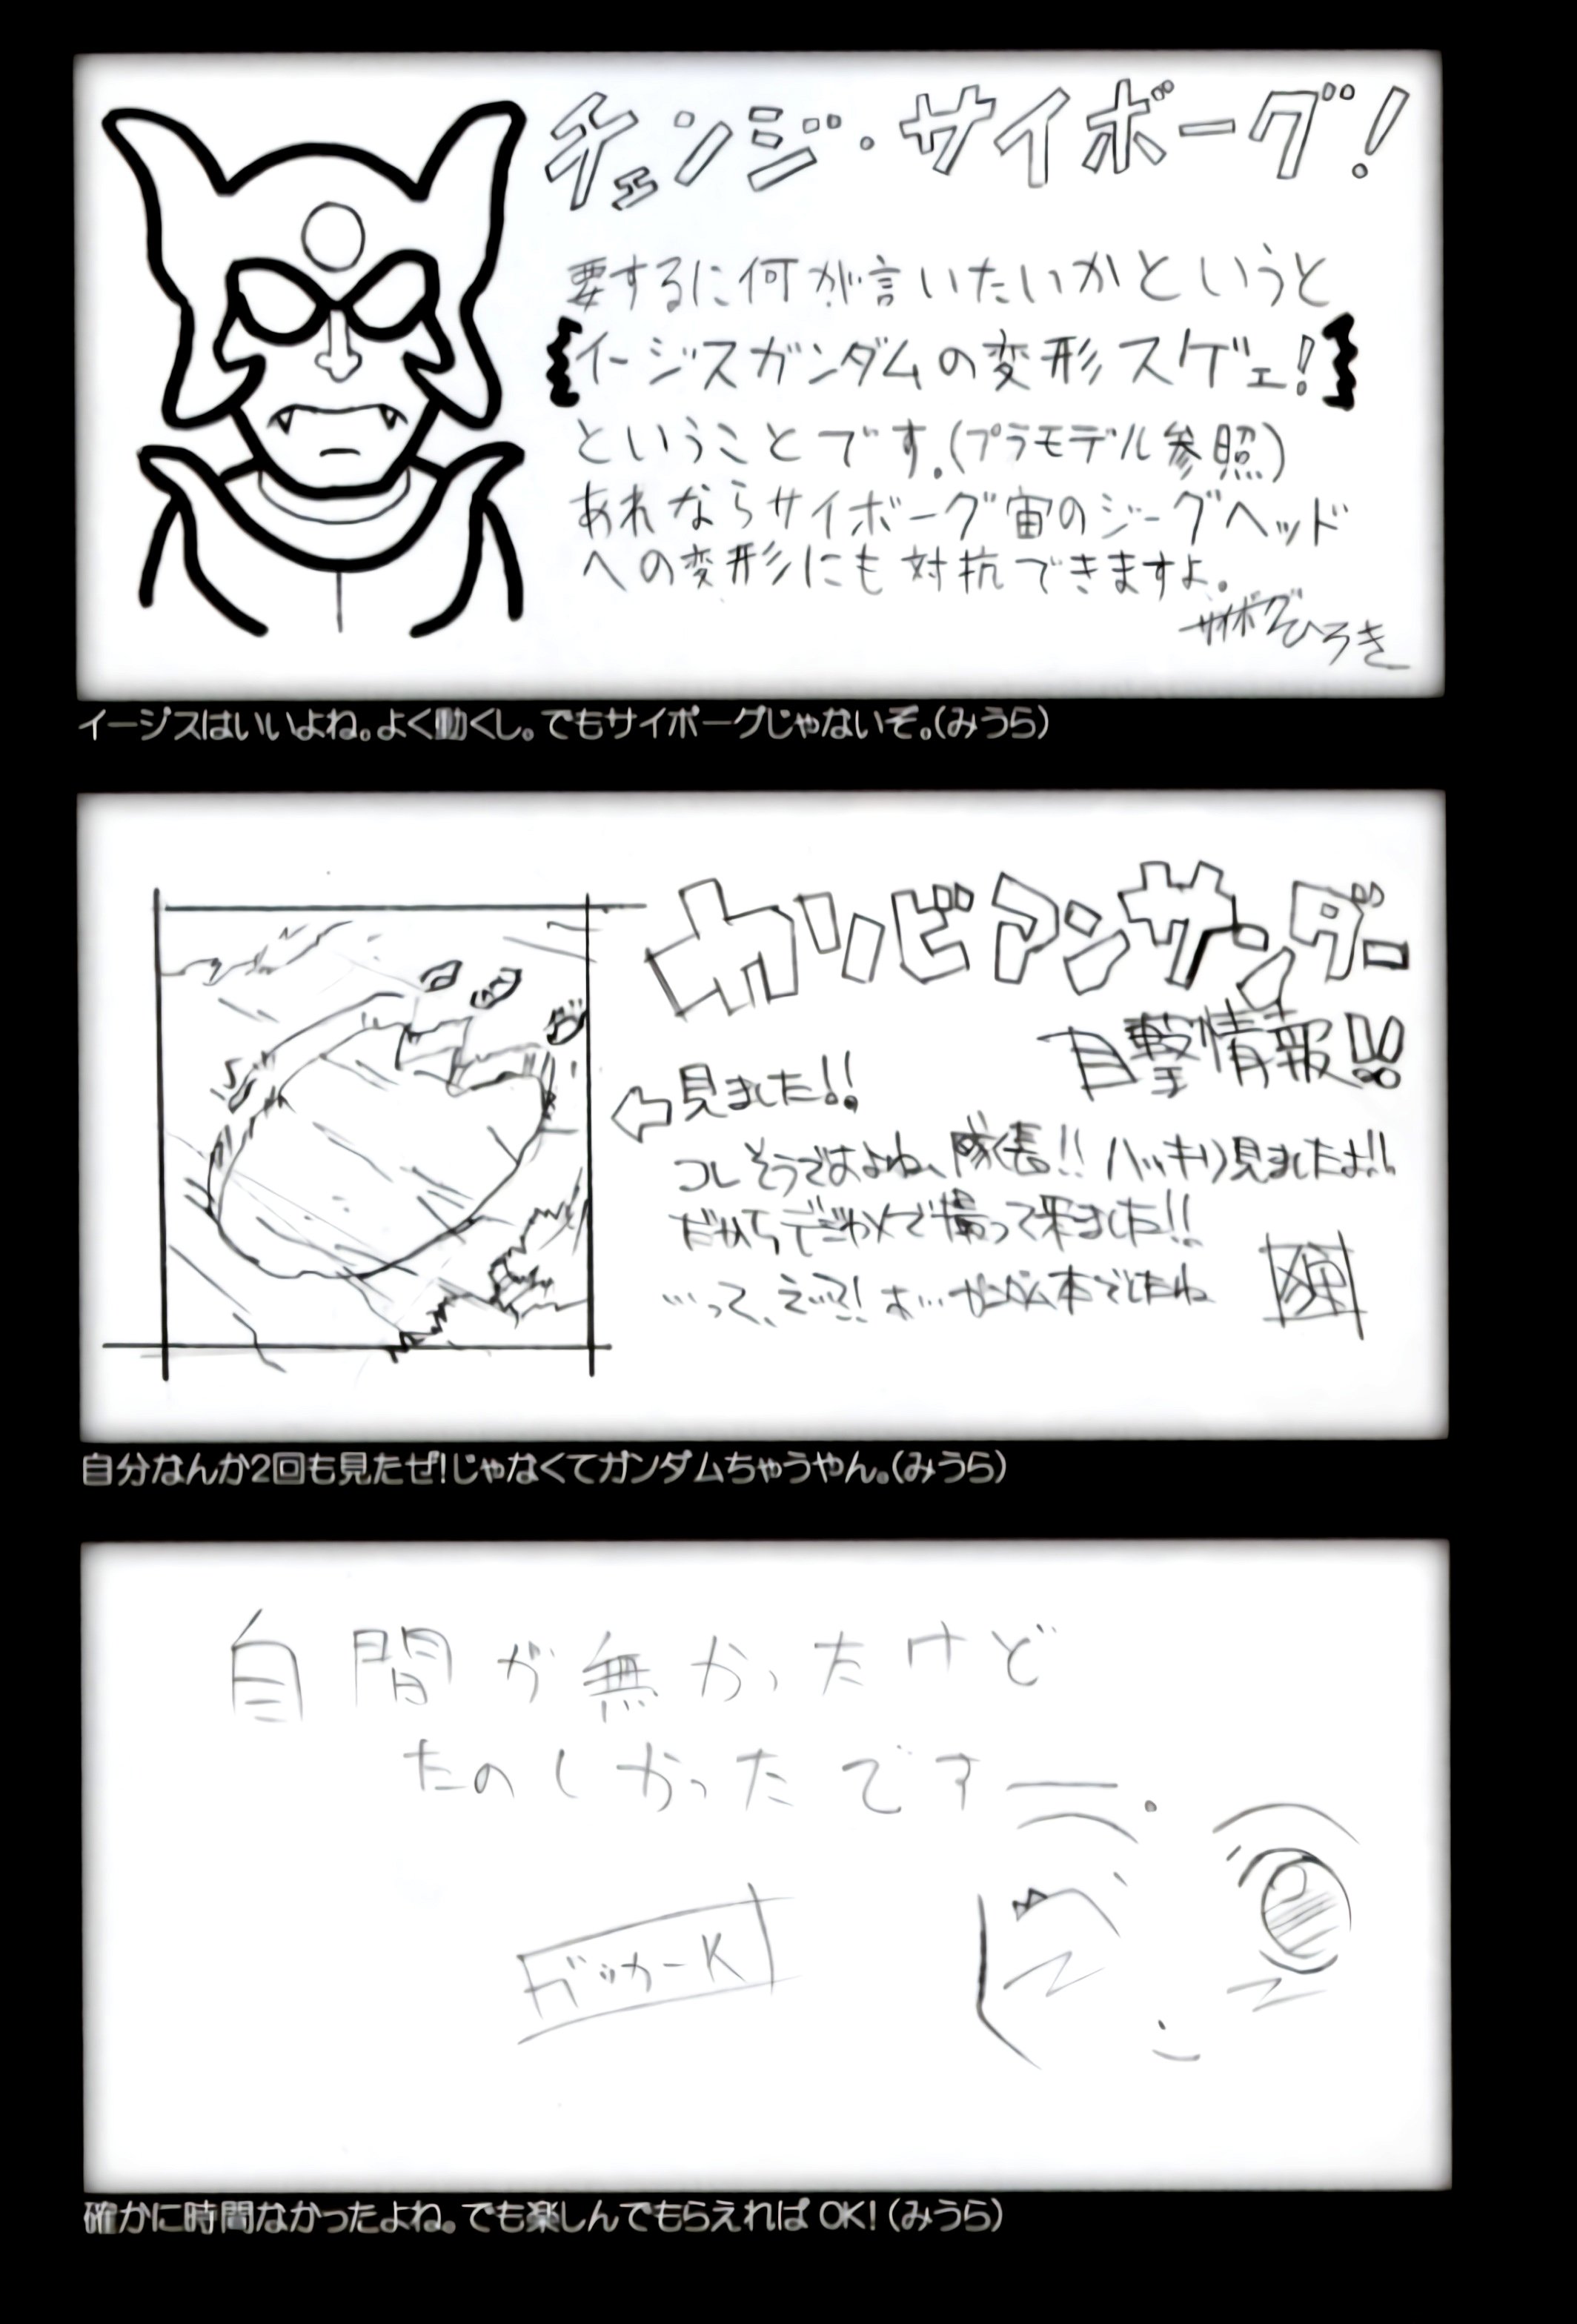 チェンジ・サイボーグ!
要するに何が言いたいかというと
イージスガンダムの変形スゲェ!
ということです。(プラモデル参照)
あれならサイボーグ宙のジーグヘッド
への変形にも対抗できますよ。
サイボーグひろき
イージスはいいよね。よく動くし。でもサイボーグじゃないぞ。(みうら)
カリビアンサンダー
目撃情報!!
見ました!!
コレそうですよね、隊長!! ハッキリ見ましたよ!!
だからデジカメで撮って来ました!!
…って、えっ?! あ…ガンダム本でしたね
自分なんか2回も見たぜ!じゃなくてガンダムちゃうやん。(みうら)
自間が無かったけど
たのしかったです―.
ガッカーK
確かに時間なかったよね。でも楽しんでもらえれば OK! (みうら)